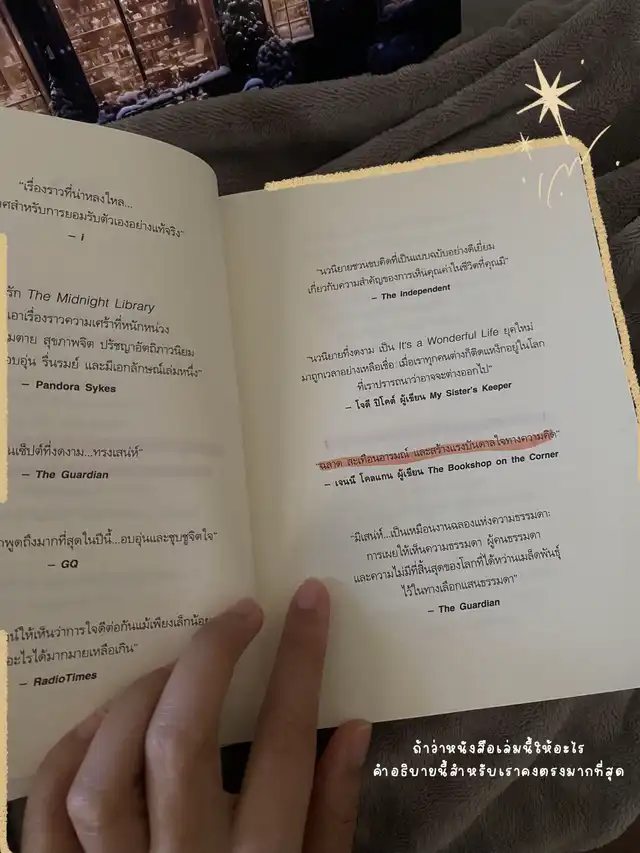 "เรื่องราวที่น่าหลงใหล...
ศสำหรับการยอมรับตัวเองอย่างแท้จริง"
– i
รัก The Midnight Library
เอาเรื่องราวความเศร้าที่หนักหน่วง
มตาย สุขภาพจิต ปรัชญาอัตถิภาวนิยม
อบอุ่น รื่นรมย์ และมีเอกลักษณ์เล่มหนึ่ง"
– Pandora Sykes
นเซ็ปต์ที่งดงาม...ทรงเสน่ห์"
– The Guardian
าพูดถึงมากที่สุดในปีนี้...อบอุ่นและชุบชูจิตใจ"
– GQ
จน์ให้เห็นว่าการใจดีต่อกันแม้เพียงเล็กน้อย
อะไรได้มากมายเหลือเกิน"
– RadioTimes
"นวนิยายชวนขบคิดที่เป็นแบบฉบับอย่างดีเยี่ยม
เกี่ยวกับความสำคัญของการเห็นคุณค่าในชีวิตที่คุณมี"
– The Independent
"นวนิยายที่งดงาม เป็น It's a Wonderful Life ยุคใหม่
มาถูกเวลาอย่างเหลือเชื่อ เมื่อเราทุกคนต่างก็ติดแหง็กอยู่ในโลก
ที่เราปรารถนาว่าอาจจะต่างออกไป"
– โจดี ปิโคต์ ผู้เขียน My Sister's Keeper
"ฉลาด สะเทือนอารมณ์ และสร้างแรงบันดาลใจทางความคิด"
– เจนนี โคลแกน ผู้เขียน The Bookshop on the Corner
"มีเสน่ห์...เป็นเหมือนงานฉลองแห่งความธรรมดา:
การเผยให้เห็นความธรรมดา ผู้คนธรรมดา
และความไม่มีที่สิ้นสุดของโลกที่ได้หว่านเมล็ดพันธุ์
ไว้ในทางเลือกแสนธรรมดา"
– The Guardian
ถ้าว่าหนังสือเล่มนี้ให้อะไร
คำอธิบายนี้สำหรับเราคงตรงมากที่สุด